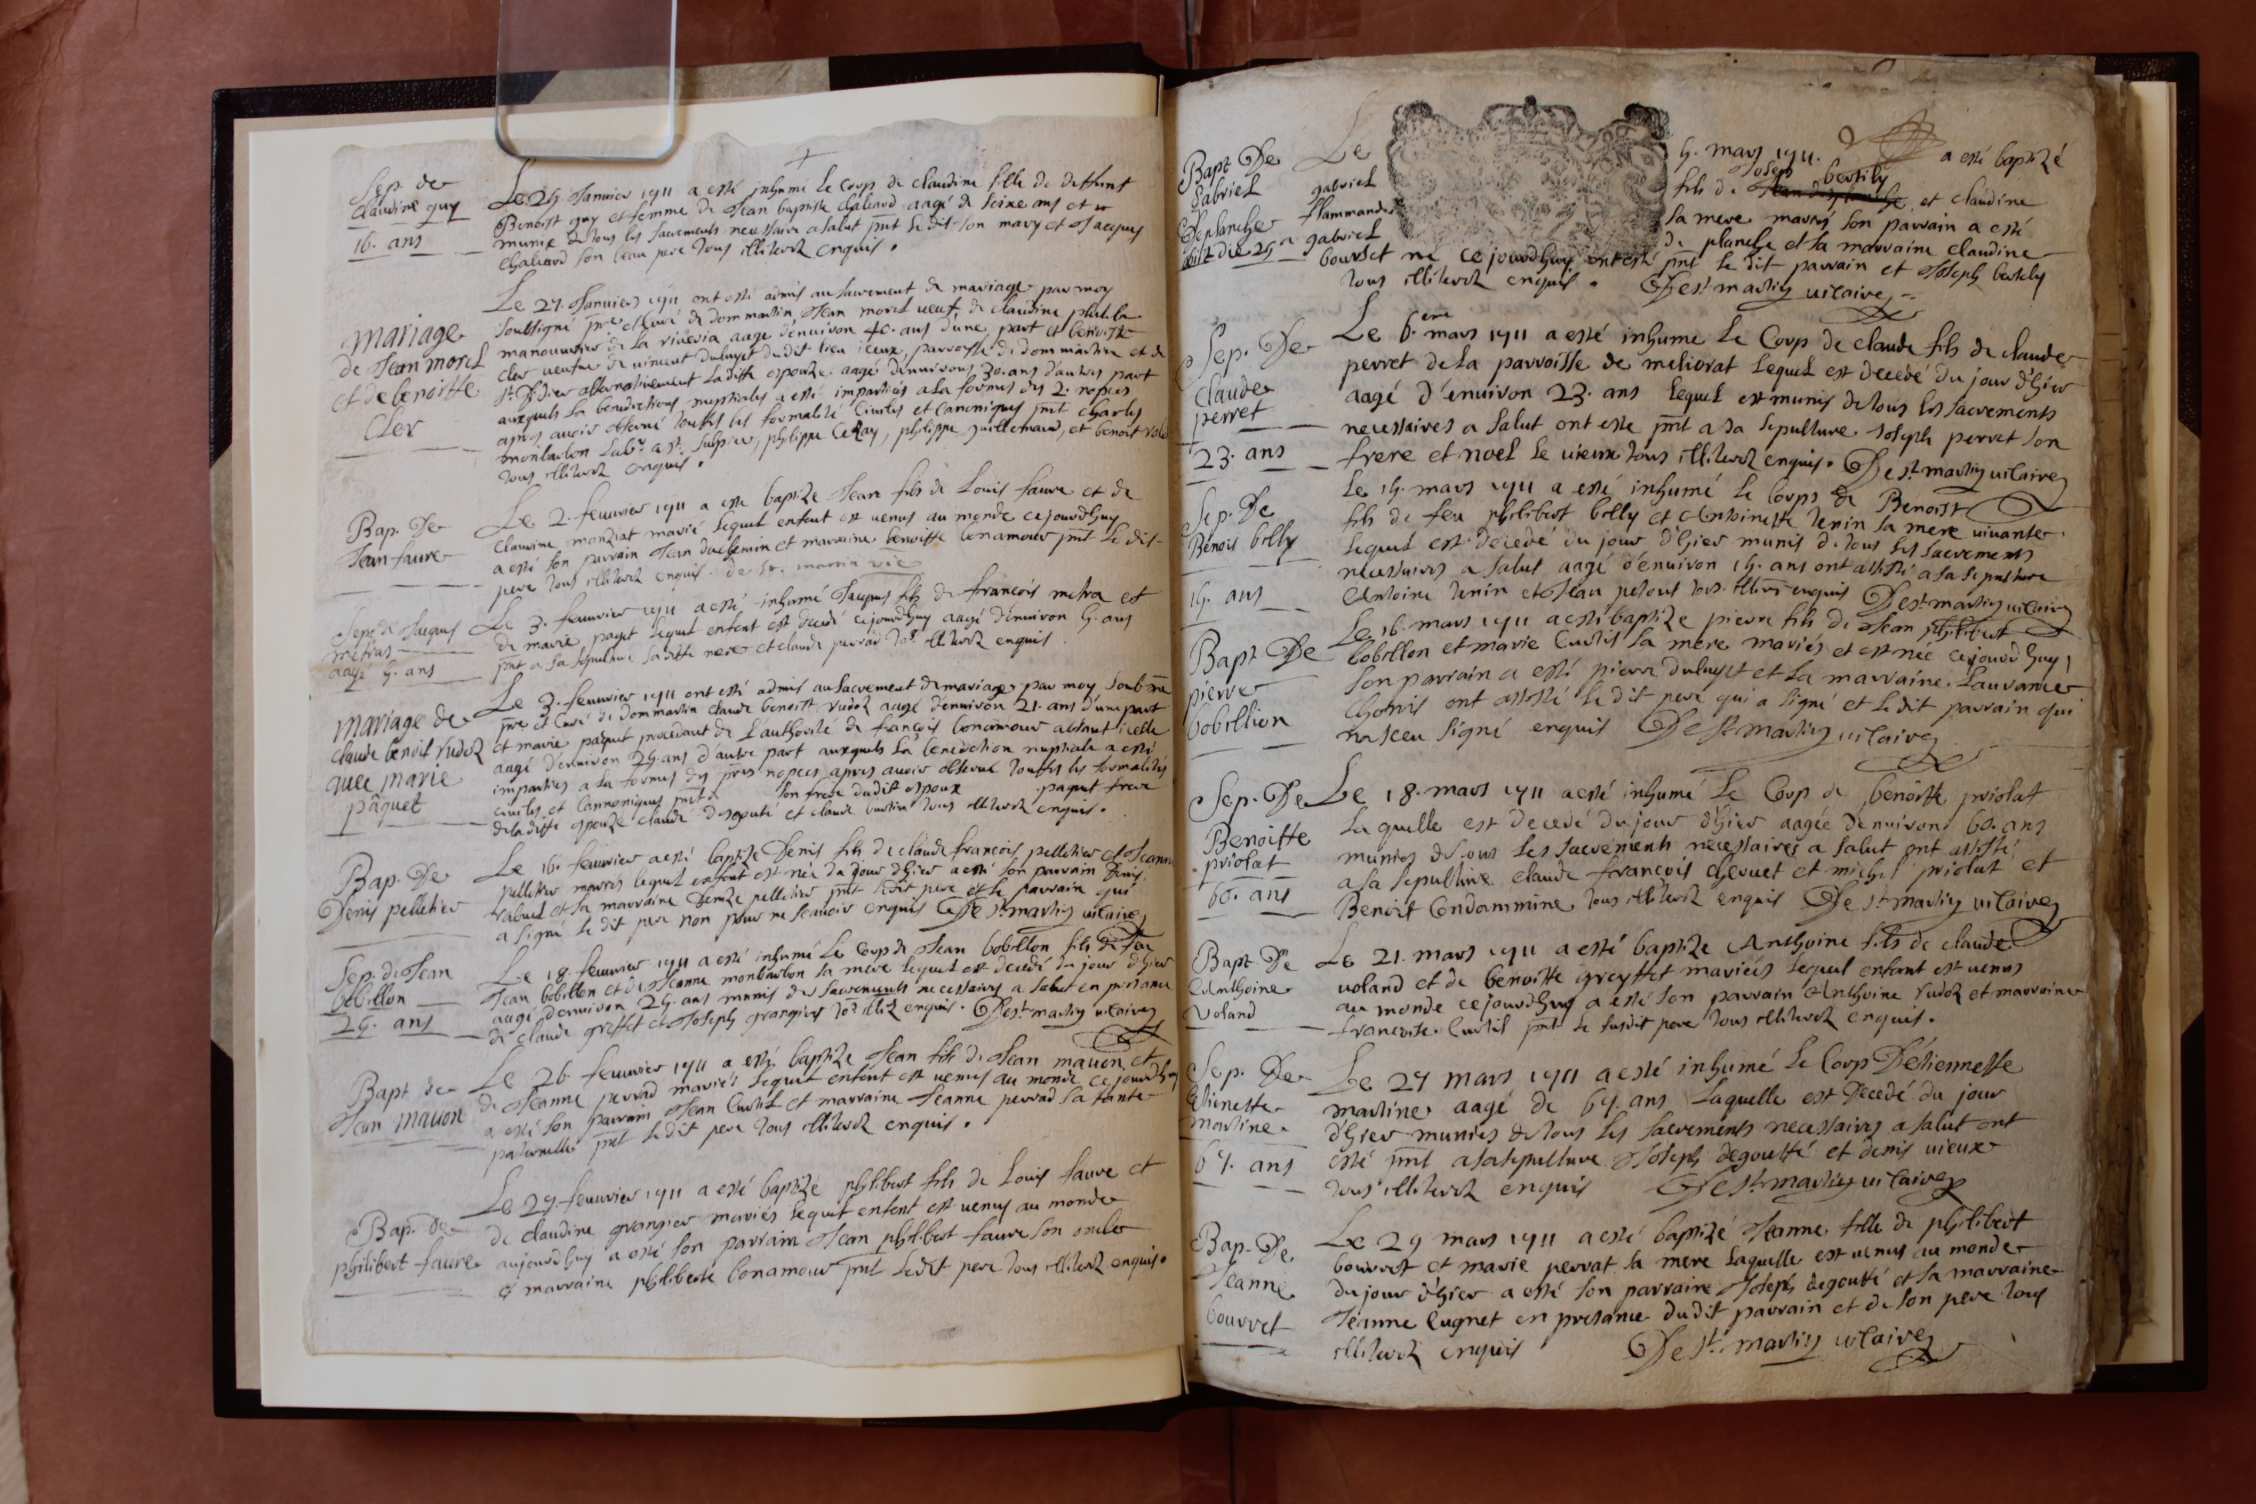 Sep. de
Claudine guy
16. ans
Le 25 Janvier 1711 a esté inhumé le Corps de claudine fille de deffunt
Benoist guy et femme de Jean baptiste chaliard aagé de seixe ans et
munie de tous les sacrements necessaire a salut pnt le dit son mary et Jacques
chaliard son beau pere tous illiterez enquis.
Mariage
de Jean morel
et de benoitte
Cler
Le 27. Janvier 1711 ont esté admis au sacrement de mariage par moy
soubsigné pre et curé de dommartin, Jean morel veuf de claudine
manouvrier de la riviera aagé d'environ 40. ans d'une part et benoiste
cler veufve de vincent dubuyst du dit lieu iceux, parroisse de dommartin et de
st Didier alternativement la ditte espouze aagé d'environs 30. ans d'autre part
auxquels la benediction nuptiales a esté imparties a la formes des 2. nopces
apres avoir observé touttes les formalité Civiles et Canoniques pnt Charles
montbarbon Labr a st. Sulpice, philippe Cezay, philippe guillemaud, et benoit
tous illiterez enquis.
Bap. De
Jean faure
Le 2. fevvrier 1711 a este baptize Jean fils de Louis faure et de
Claudine monziat marié lequel enfent est venus au monde cejourdhuy
a esté son parrain Jean duchemin et marraine benoitte bonamour pnt le dit
pere tous illiterez enquis. de st. martin vic
Sep. de Jacques
metras
aagé 5. ans
Le 3. fevvrier 1711 a esté inhumé Jacques fils de françois metra et
de marie paquet lequel enfent est decedé cejourdhuy aagé d'environ 5. ans
pnt a sa sepulture sa ditte mere et claude perrad tos illiterez enquis
Mariage de
Claude benoit rudoz
avec marie
pâquet
Le 3. fevvrier 1711 ont esté admis au Sacrement de mariage par moy soubné
pre et Curé de dommartin claude benoitt rudoz aagé d'environ 21. ans d'une part
et marie paquet procedant de l'authorité de françois bonamour absent icelle
aagé d'environ 25. ans d'autre part auxquels la benediction nuptiale a esté
imparties a la formes des pres nopces apres avoir observé touttes les formalités
civiles et Cannoniques pnt son frere dudit espoux paquet frere
de la ditte espouze claude degoute et claude tous illiterez enquis.
Bap. De
Denis pelletier
Le 16. fevvrier a esté baptize Denis fils de claude francois pelletier et Jeanne
pelletier mariés lequel enfent est née du jour dhier a esté son parrain Denis
rabuel et sa marraine Denize pelletier pnt ledit pere et le parrain qui
a signé le dit pere non pour ne scavoir enquis De st. martin vicaire
Sep. de Jean
bobillon
25. ans
Le 18. fevvrier 1711 a esté inhumé le Corps de Jean bobillon fils de feu
Jean bobillon et de Jeanne montbarbon sa mere lequel est decedé du jour dhier
aagé d'environ 25. ans munis des sacrements necessaires a salut en presance
de claude greffet et Joseph grangier tos illitez enquis. De st. martin vicaire
Bapt de
Jean mavon
Le 26. fevvrier 1711 a esté baptize Jean fils de Jean mavon et
de Jeanne perrad mariés lequel enfent est venus au monde cejourdhuy
a esté son parrain Jean Curtil et marraine Jeanne perrad sa tante
paternelle pnt le dit pere tous illiterez enquis.
Bap. de
philibert faure
Le 27. fevvrier 1711 a esté baptizé philibert fils de Louis faure et
de claudine grangier mariés lequel enfent est venus au monde
aujourdhuy a esté son parrain Jean philibert faure son oncle
et marraine philiberte bonamour pnt ledit pere tous illiterez enquis.
Bapt De
Gabriel
Deplanche
Le 5. mars 1711. a esté baptizé
gabriel fils de Joseph bertily et claudine
flammande sa mere mariés son parrain a esté
gabriel de planche et la marraine claudine
bourdet né cejourdhuy ont esté pnt le dit parrain et Joseph bertily
tous illiterez enquis. De st martin vicaire
Sep. De
Claude
perret
23. ans
Le 6.eme mars 1711 a esté inhumé le Corps de claude fils de claude
perret de la parroisse de meliorat lequel est decedé du jour dhier
aagé d'environ 23. ans lequel est munis de tous les sacrements
necessaires a salut ont este pnt a sa sepulture Joseph perret son
frere et noel le vieux tous illiterez enquis. De st martin vicaire
Sep. De
Benois billy
15. ans
Le 15. mars 1711 a esté inhumé le Corps de Benoist
fils de feu philibert billy et Antoinette tenin sa mere vivante
lequel est decedé du jour dhier munis de tous les sacrements
necessaires a salut aagé d'environ 15. ans ont assisté a sa sepulture
Antoine tenin et Jean petout tous illiterez enquis De st martin vicaire
Bapt De
pierre
bobillion
Le 16. mars 1711 a esté baptize pierre fils de Jean philibert
bobillon et marie Curtil sa mere mariés et est née cejourdhuy
son parrain a esté pierre dubuyst et la marraine Laurance
Chanis ont assisté le dit pere qui a signé et le dit parrain qui
na sceu signé enquis De st martin vicaire
Sep. De
Benoitte
priolat
60. ans
Le 18. mars 1711 a esté inhumé le Corps de benoitte priolat
laquelle est decedé du jour dhier aagée denviron 60. ans
munies de tous les sacrements necessaires a salut ont assisté
a sa sepulture claude françois chevvet et michel priolat et
Benoist Condammine tous illiterez enquis De st martin vicaire
Bapt De
Anthoine
voland
Le 21. mars 1711 a esté baptize Anthoine fils de claude
voland et de benoitte greyffet mariées lequel enfent est venus
au monde cejourdhuy a esté son parrain Anthoine rudoz et marraine
francoise Curtil pnt le susdit pere tous illiterez enquis.
Sep. De
Etienette
martine
67. ans
Le 27 mars 1711 a esté inhumé le Corps D'etiennette
martine aagé de 67. ans laquelle est decedé du jour
dhier munies de tous les sacrements necessaires a salut ont
esté pnt a sa sepulture Joseph degoutté et denis vieux
tous illiterez enquis De st. martin vicaire
Bap. De
Jeanne
bourret
Le 29 mars 1711 a esté baptizé Jeanne fille de philibert
bourret et marie perrat sa mere laquelle est venus au monde
du jour dhier a esté son parraire Joseph degoutté et la marraine
Jeanne Cugnet en presance dudit parrain et de son pere tous
illiterez enquis De st. martin vicaire